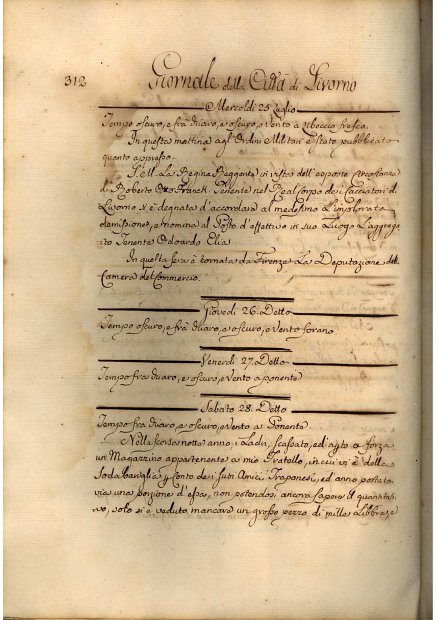 312 Giornale della Città di Livorno
Mercoldì 25 Luglio
Tempo oscuro, e frà chiaro, e oscuro, e vento a libeccio fresco.
In questa mattina agl'Ordini Militari è stato pubblicato
quanto appresso.
S. M. La Regina Reggente in vista dell'esposte circostanze
di Roberto Otto Franck Tenente nel Real Corpo dei Cacciatori di
Livorno si è degnata d'accordare al medesimo l'implorata
demissione, e nomina al Posto d'effettivo in suo Luogo l'aggrega
to Tenente Edoardo Elia
In questa sera è tornata da Firenze La Deputazione della
Camera del Commercio.
Giovedì 26. Detto
Tempo oscuro, e frà chiaro, e oscuro, e vento forano
Venerdì 27. Detto
Tempo fra chiaro, e oscuro, e vento a ponente
Sabato 28. Detto
Tempo fra chiaro, e oscuro, e vento a Ponente.
Nella scorsa notte anno i Ladri, scassato, ed aperto a forza
un Magazzino appartenente a mio Fratello, in cui vi è della
Soda bariglia p conto dei suoi Amici Trapanesi, ed anno portato
via una porzione d'essa, non potendosi ancora sapere il quantitati-
vo, solo si è veduto mancare un grosso pezzo di mille Libbre, e